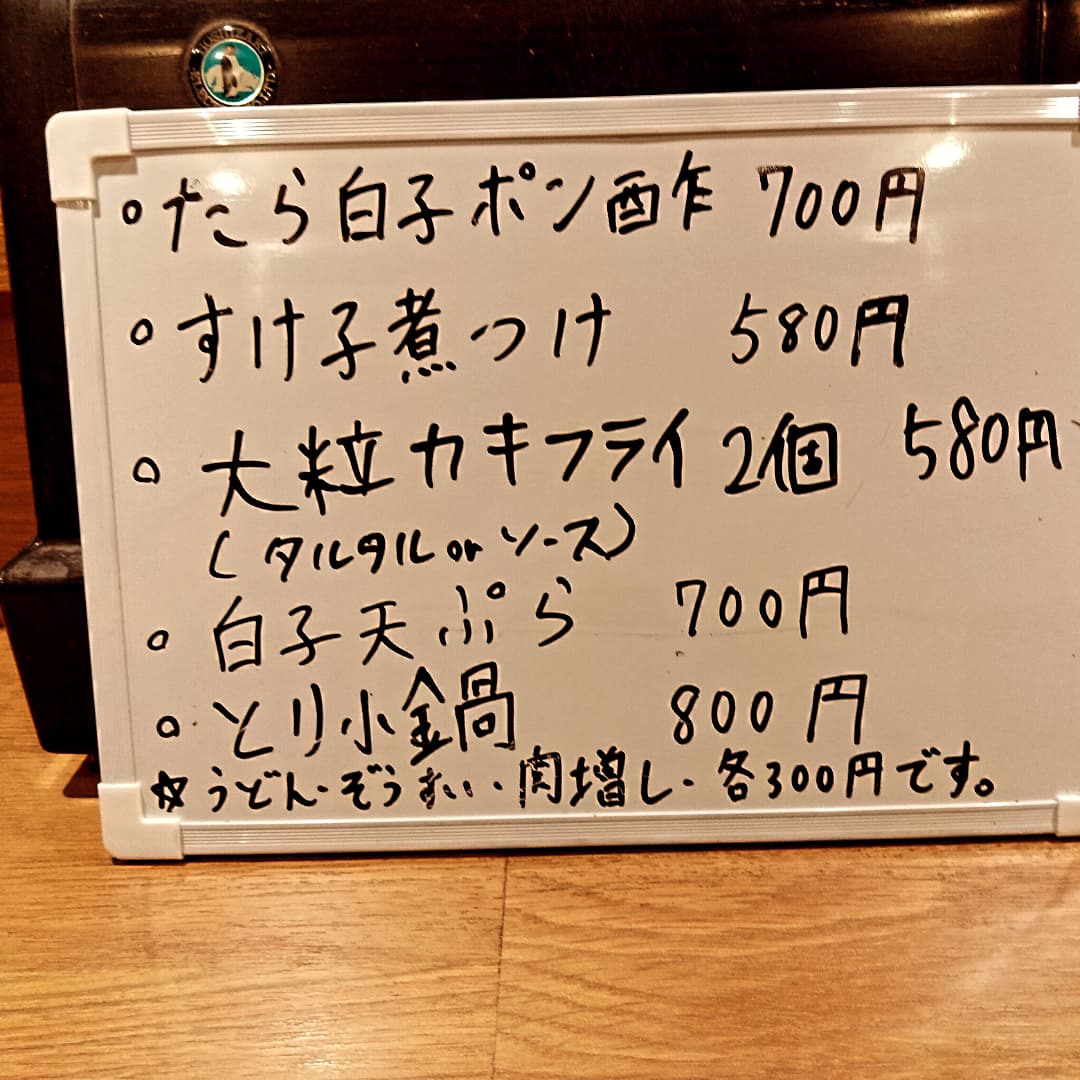 。たら白子ポン酢 700円
。すけ子煮つけ 580円
。大粒カキフライ2個 580円
(タルタル or ソース)
。白子天ぷら 700円
。とり小鍋 800円
☆うどん・ぞうすい・肉増し・各300円です。